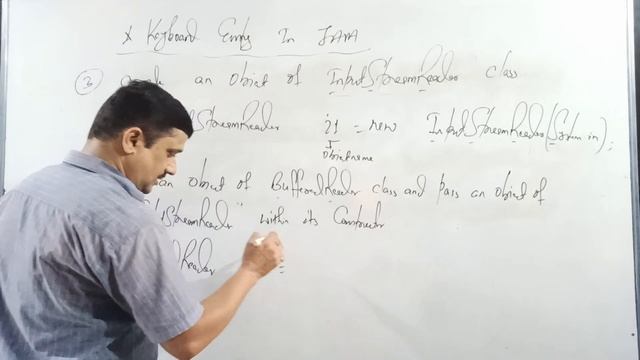 * Keyboard Entry In JAVA
3 an Object of InputStreamReader class
StreamReader = new InputStreamReader(System.in);
Objectname
an object of BufferedReader class and pass an object of
StreamReader" within its Constructor
Reader